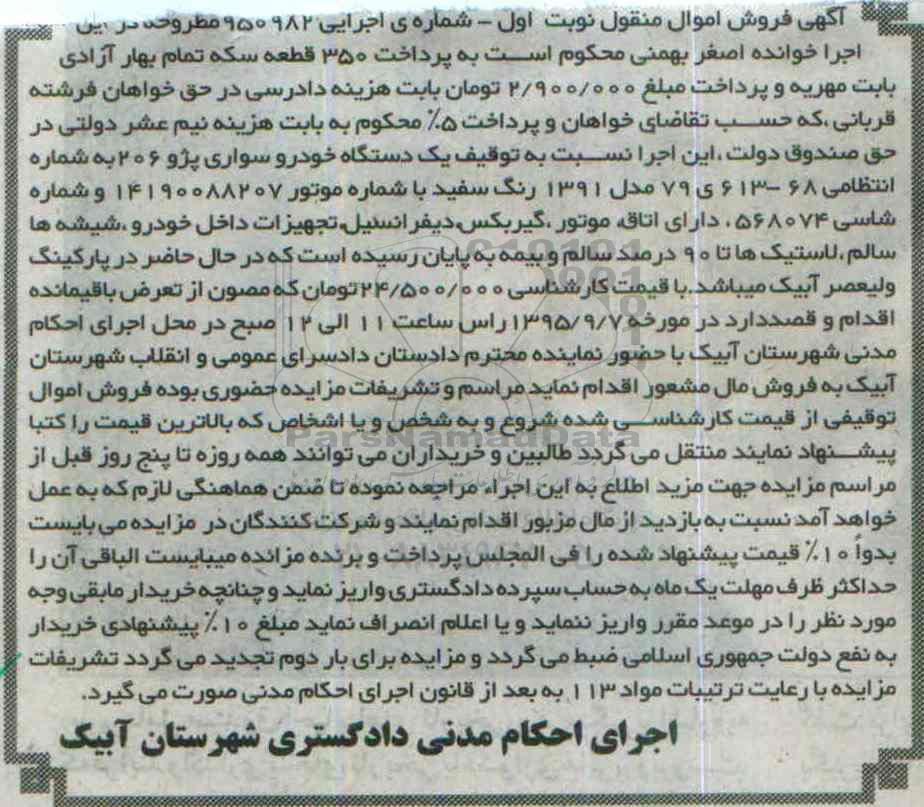 آگهی فروش اموال منقول نوبت اول - شماره ی اجرایی ۹۵۰۹۸۲ مطروحه در این
اجرا خوانده اصغر بهمنی محکوم است به پرداخت ۳۵۰ قطعه سکه تمام بهار آزادی
بابت مهریه و پرداخت مبلغ ۲/۹۰۰/۰۰۰ تومان بابت هزینه دادرسی در حق خواهان فرشته
قربانی ،که حسب تقاضای خواهان و پرداخت ۵٪ محکوم به بابت هزینه نیم عشر دولتی در
حق صندوق دولت ،این اجرا نسبت به توقیف یک دستگاه خودرو سواری پژو ۲۰۶ به شماره
انتظامی ۶۸ -۶۱۳ ی ۷۹ مدل ۱۳۹۱ رنگ سفید با شماره موتور ۱۴۱۹۰۰۸۸۲۰۷ و شماره
شاسی ۵۶۸۰۷۴ ، دارای اتاق، موتور ،گیربکس،دیفرانسیل،تجهیزات داخل خودرو ،شیشه ها
سالم ،لاستیک ها تا ۹۰ درصد سالم و بیمه به پایان رسیده است که در حال حاضر در پارکینگ
ولیعصر آبیک میباشد.با قیمت کارشناسی ۲۴/۵۰۰/۰۰۰ تومان که مصون از تعرض باقیمانده
اقدام و قصددارد در مورخه ۱۳۹۵/۹/۷ راس ساعت ۱۱ الی ۱۲ صبح در محل اجرای احکام
مدنی شهرستان آبیک با حضور نماینده محترم دادستان دادسرای عمومی و انقلاب شهرستان
آبیک به فروش مال مشعور اقدام نماید مراسم و تشریفات مزایده حضوری بوده فروش اموال
توقیفی از قیمت کارشناسی شده شروع و به شخص و یا اشخاص که بالاترین قیمت را کتبا
پیشنهاد نمایند منتقل می گردد طالبین و خریداران می توانند همه روزه تا پنج روز قبل از
مراسم مزایده جهت مزید اطلاع به این اجراء مراجعه نموده تا ضمن هماهنگی لازم که به عمل
خواهد آمد نسبت به بازدید از مال مزبور اقدام نمایند و شرکت کنندگان در مزایده می بایست
بدواً ۱۰٪ قیمت پیشنهاد شده را فی المجلس پرداخت و برنده مزانده میبایست الباقی آن را
حداکثر ظرف مهلت یک ماه به حساب سپرده دادگستری واریز نماید و چنانچه خریدار مابقی وجه
مورد نظر را در موعد مقرر واریز ننماید و یا اعلام انصراف نماید مبلغ ۱۰٪ پیشنهادی خریدار
به نفع دولت جمهوری اسلامی ضبط می گردد و مزایده برای بار دوم تجدید می گردد تشریفات
مزایده با رعایت ترتیبات مواد ۱۱۳ به بعد از قانون اجرای احکام مدنی صورت می گیرد.
اجرای احکام مدنی دادگستری شهرستان آبیک
ParsNamadData